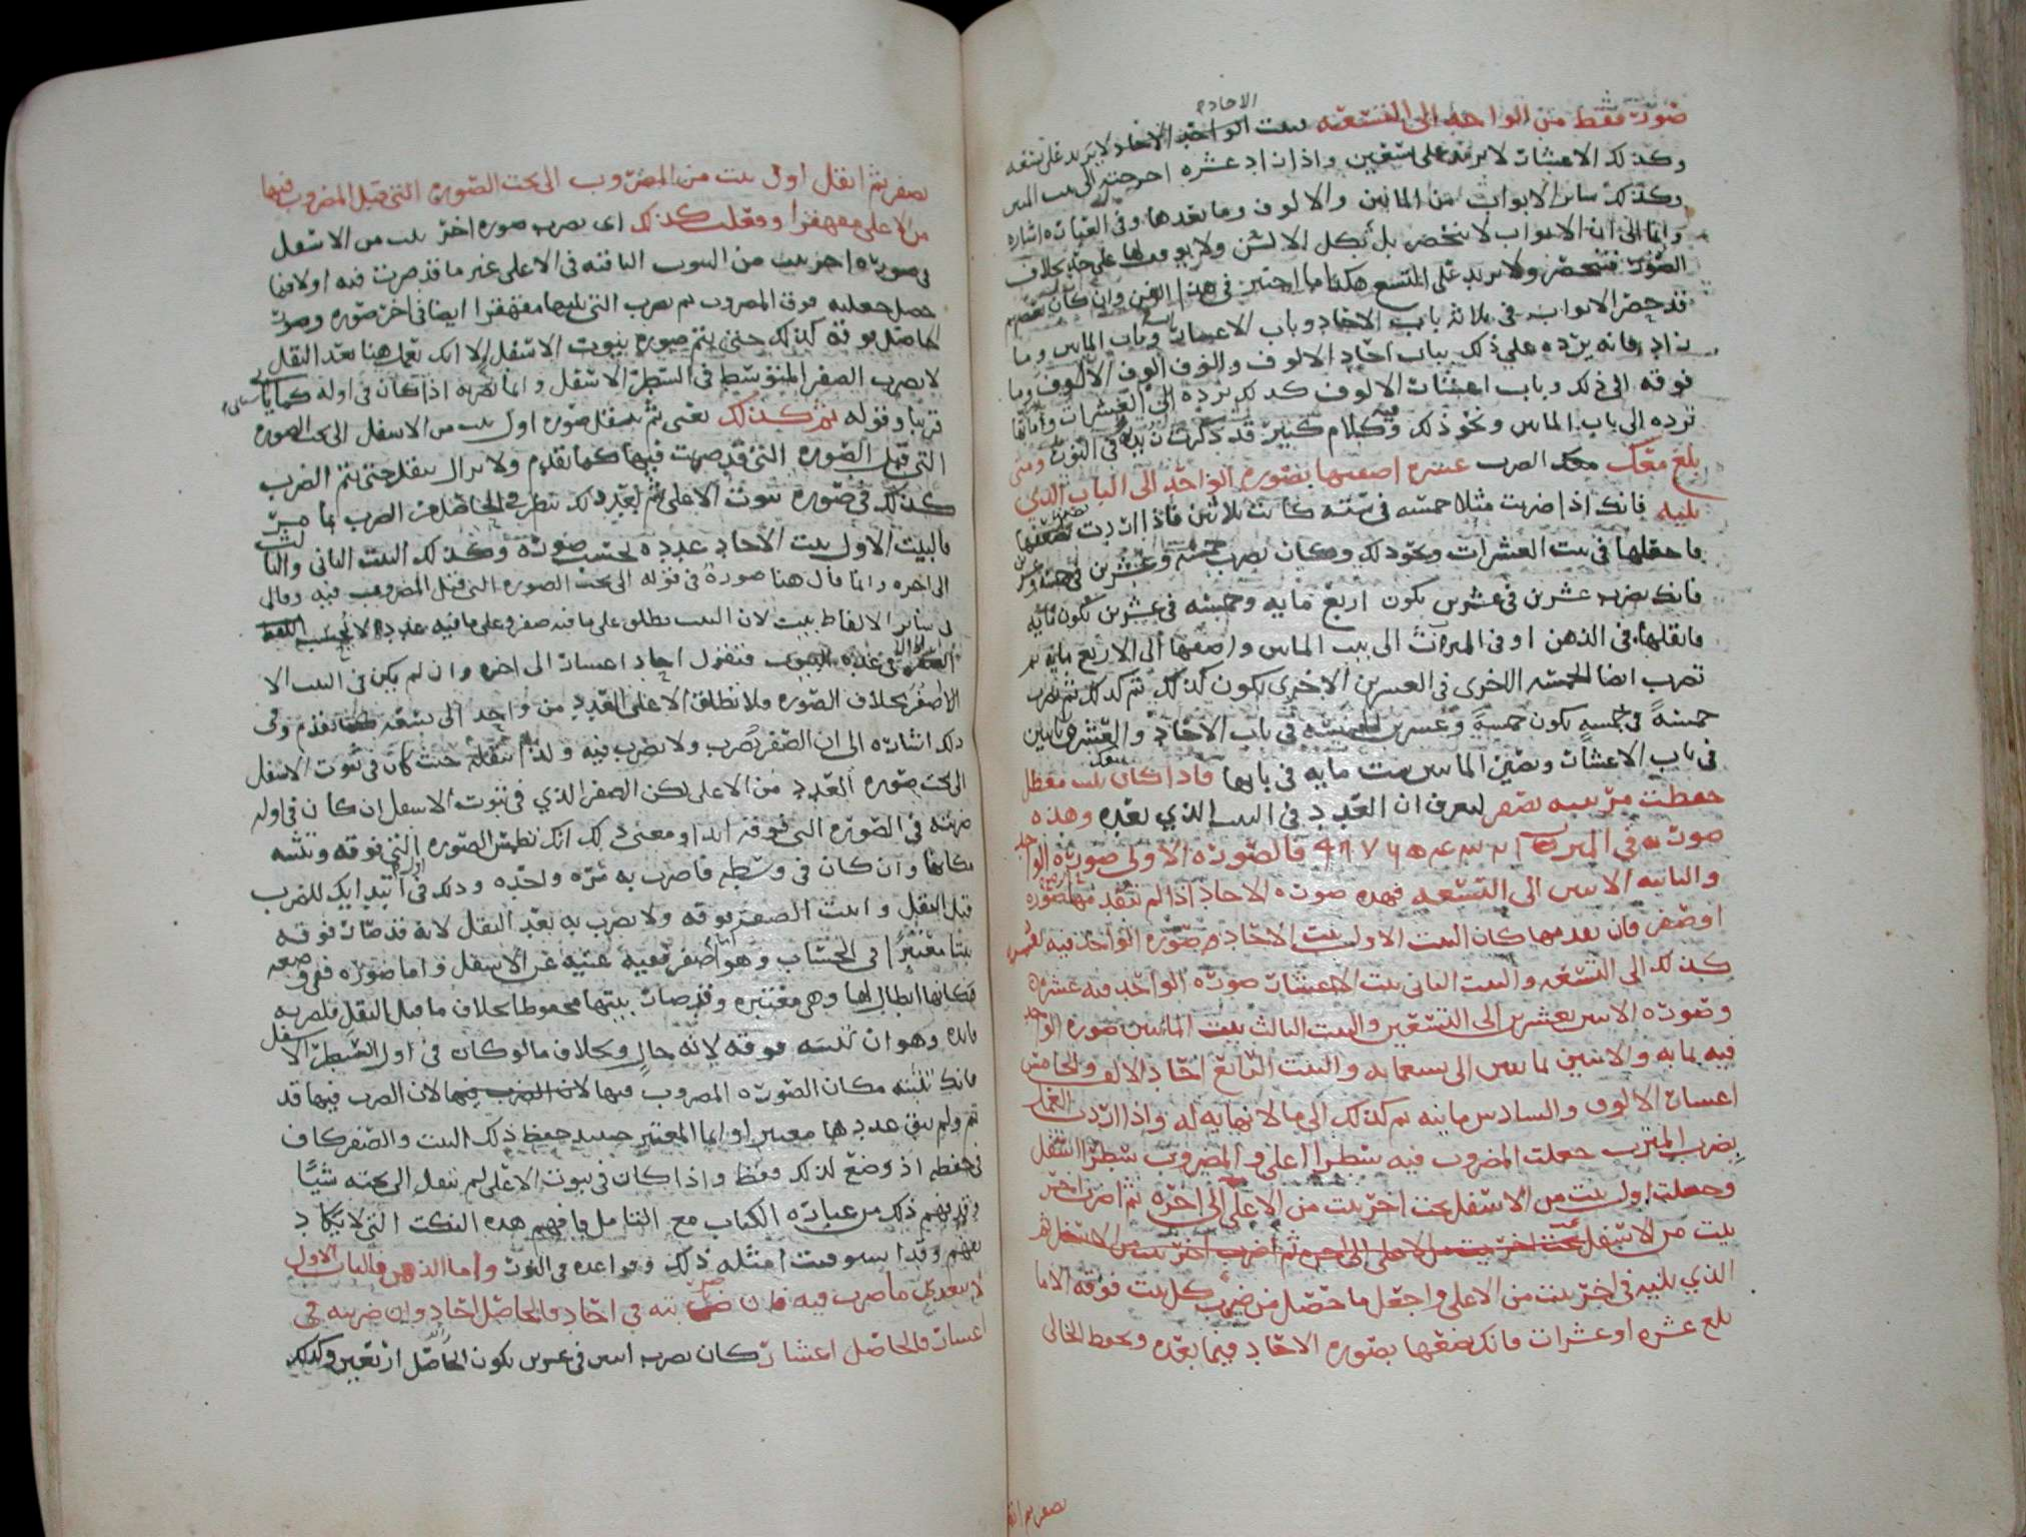 صورت فقط من الواحد الى التسعة بيت الاحاد لا يزيد على تسعه
وكذلك الاعشار لا يزيد على تسعين واذا زاد عشره اخرجته الى بيت المئين
وكذلك سائر الابواب من المائين والالوف وما بعدها وفي العبارة اشارة
وايما الى ان الابواب لا تنحصر بل بكل الالسن ولا يوقف لها على حد بخلاف
الصور فتنحصر ولا يزيد على التسع هكذا ما اختير في هذا الفن وان كان بعضهم
قد حصر الابواب في ثلاثة باب الاحاد وباب الاعشار وباب المائين وما
زاد فانه يرده على ذلك بباب احاد الالوف والوف الوف الالوف وما
فوقه الى ذلك وباب اعشار الالوف كذلك يرده الى العشرات
ترده الى باب المائين ونحو ذلك وكلام كثير قد ذكرت نبذة في النوت ومتى
بلغ معك معك الضرب عشره اضفتها بصورة الواحد الى الباب الذي
يليه فانك اذا ضربت مثلا خمسه في سته كانت ثلاثين فاذا اردت تضعها
فاجعلها في بيت العشرات ونحو ذلك وكان تضرب خمسه وعشرين في خمسه وعشرين
فانك تضرب عشرين في عشرين يكون اربع مايه وخمسه في عشرين تكون مايه
فانقلها في الذهن او في الميراث الى بيت المائين واضفها الى الاربع مايه ثم
تضرب ايضا الخمسه الاخرى في العشرين الاخرى يكون كذلك ثم كذلك ثم تضرب
خمسة في خمسة يكون خمسة وعشرين الخمسه في باب الاحاد والعشرين
في باب الاعشار وتصير المائين ست مايه في بابها فاذا كان بيت معطل
حفظت مرتبته بصفر ليعرف ان العدد في البيت الذي بعده وهذه
صورته في الميراث ١ ٢ ٣ ٤ ٥ ٦ ٧ ٨ ٩ فالصورة الاولى صورة الواحد
والثانيه الاثنين الى التسعه فهذه صورة الاحاد اذا لم تتقدمها صورة
او صفر فان تقدمها كان البيت الاول بيت الاحاد صورة الواحد فيه
كذلك الى التسعه والبيت الثاني بيت الاعشار صورة الواحد فيه عشره
وصورة الاثنين بعشرين الى التسعين والبيت الثالث بيت المائين صورة الواحد
فيه بمايه والاثنين بمايتين الى تسعمايه والبيت الرابع احاد الالوف والخامس
اعشار الالوف والسادس ماينه ثم كذلك الى ما لا نهاية له واذا اردت العمل
بضرب الميزب جعلت المضروب فيه سطرا اعلى والمضروب سطرا اسفل
وجعلت اول بيت من الاسفل تحت اخر بيت من الاعلى الى اخره ثم اضرب اخر
بيت من الاسفل تحت اخر بيت من الاعلى الى اخره ثم اضرب اخر بيت من الاسفل ثم
الذي يليه في اخر بيت من الاعلى واجعل ما حصل من ضرب كل بيت فوقه الا ما
بلغ عشره او عشرات فانك تضعها بصورة الاحاد فيما بعده وتحفظ الخالي
بصفر ثم انقل
بصفر ثم انقل اول بيت من المضروب الى تحت الصورة التي قبل المضروب فيها
من الاعلى مقهقرا وفعلت كذلك اي تضرب صورة اخر بيت من الاسفل
في صورة اخر بيت من البيوت الباقيه في الاعلى غير ما قد ضربت فيه اولا فما
حصل جعلته فوق المضروب ثم تضرب التي تليها مقهقرا ايضا في اخر صوره وصورت
الحاصل فوقه كذلك حتى يتم صورة بيوت الاسفل الا انك تعلم هنا بعد النقل
لا يضرب الصفر المتوسط في السطر الاسفل وانما تضربه اذا كان في اوله كما ياتي
قريبا وقوله ثم كذلك يعني ثم ينقل صورة اول بيت من الاسفل الى تحت الصوره
التي قبل الصورة التي قد ضربت فيها كما تقدم ولا يزال ينقل حتى يتم الضرب
كذلك في صورة بيوت الاعلى ثم بعد ذلك تنظر في الحاصل من الضرب بما مر
فالبيت الاول بيت الاحاد عدده بحسب صورة وكذلك البيت الثاني والثالث
الى اخره وانما قال هنا صورة في قوله الى تحت الصورة التي قبل المضروب فيه وقال
في سائر الالفاظ ببيت لان البيت يطلق على ما فيه صفر وعلى ما فيه عدد الا بحسب اللفظ
في عدد البيوت فتقول احاد اعشار الى اخره وان لم يكن في البيت الا
الاصفر بخلاف الصوره فلا تطلق الا على العدد من واحد الى تسعه كما تقدم وفي
ذلك اشاره الى ان الصفر يضرب ولا يضرب فيه ولذا تنقله حيث كان في بيوت الاسفل
الى تحت صورة العدد من الاعلى لكن الصفر الذي في بيوت الاسفل ان كان في اوله
ضربته في الصورة التي فوقه ابدا ومعنى ذلك انك تطمس الصورة التي فوقه وتثبته
مكانها وان كان في وسطه فاضرب به مرة واحده وذلك في ابتدايك للضرب
قبل النقل واثبت الصفر فوقه ولا يضرب به بعد النقل لانه قد صار فوقه
بيتا معتبرا في الحساب وهو اصفر ففيه غنيه عن الاسفل واما صورة ففي وضعه
مكانها ابطال لها وهي معتبره وقد صار بيتها محفوظا بخلاف ما قبل النقل فلضربه
فايده وهو ان تثبته فوقه لانه خال وبخلاف ما لو كان في اول السطر الاسفل
فانك تثبته مكان الصورة المضروب فيها لان الضرب فيها لان الضرب فيها قد
تم ولم يبق عددها معتبرا وانما المعتبر حينئذ حفظ ذلك البيت والصفر كاف
في حفظه اذ وضع لذلك فقط واذا كان في بيوت الاعلى لم تنقل الى تحته شيئا
وقد فهم ذلك من عبارة الكتاب مع التامل فافهم هذه النكت التي لا يكاد
تفهم وقد استوفيت امثلة ذلك وقواعده في النوت واما الذهن فالباب الاول
لا يعد بل ما ضرب فيه فان ضربته في احاد فالحاصل احاد وان ضربته في
اعشار فالحاصل اعشار كان تضرب اثنين في عشرين يكون الحاصل اربعين وكذلك